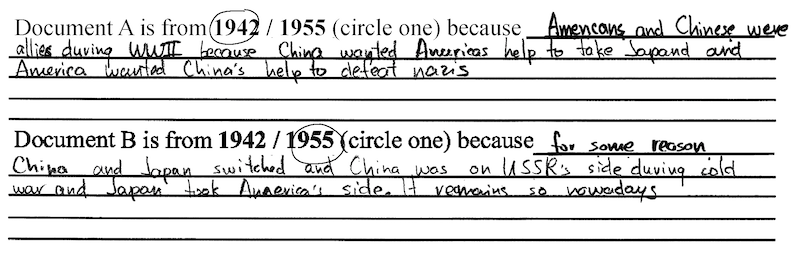 Document A is from 1942 / 1955 (circle one) because Americans and Chinese were
allies during WWII because China wanted Americas help to take Japand and
America wanted China's help to defeat nazis
Document B is from 1942 / 1955 (circle one) because for some reason
China and Japan switched and China was on USSR's side during cold
war and Japan took America's side. It remains so nowadays